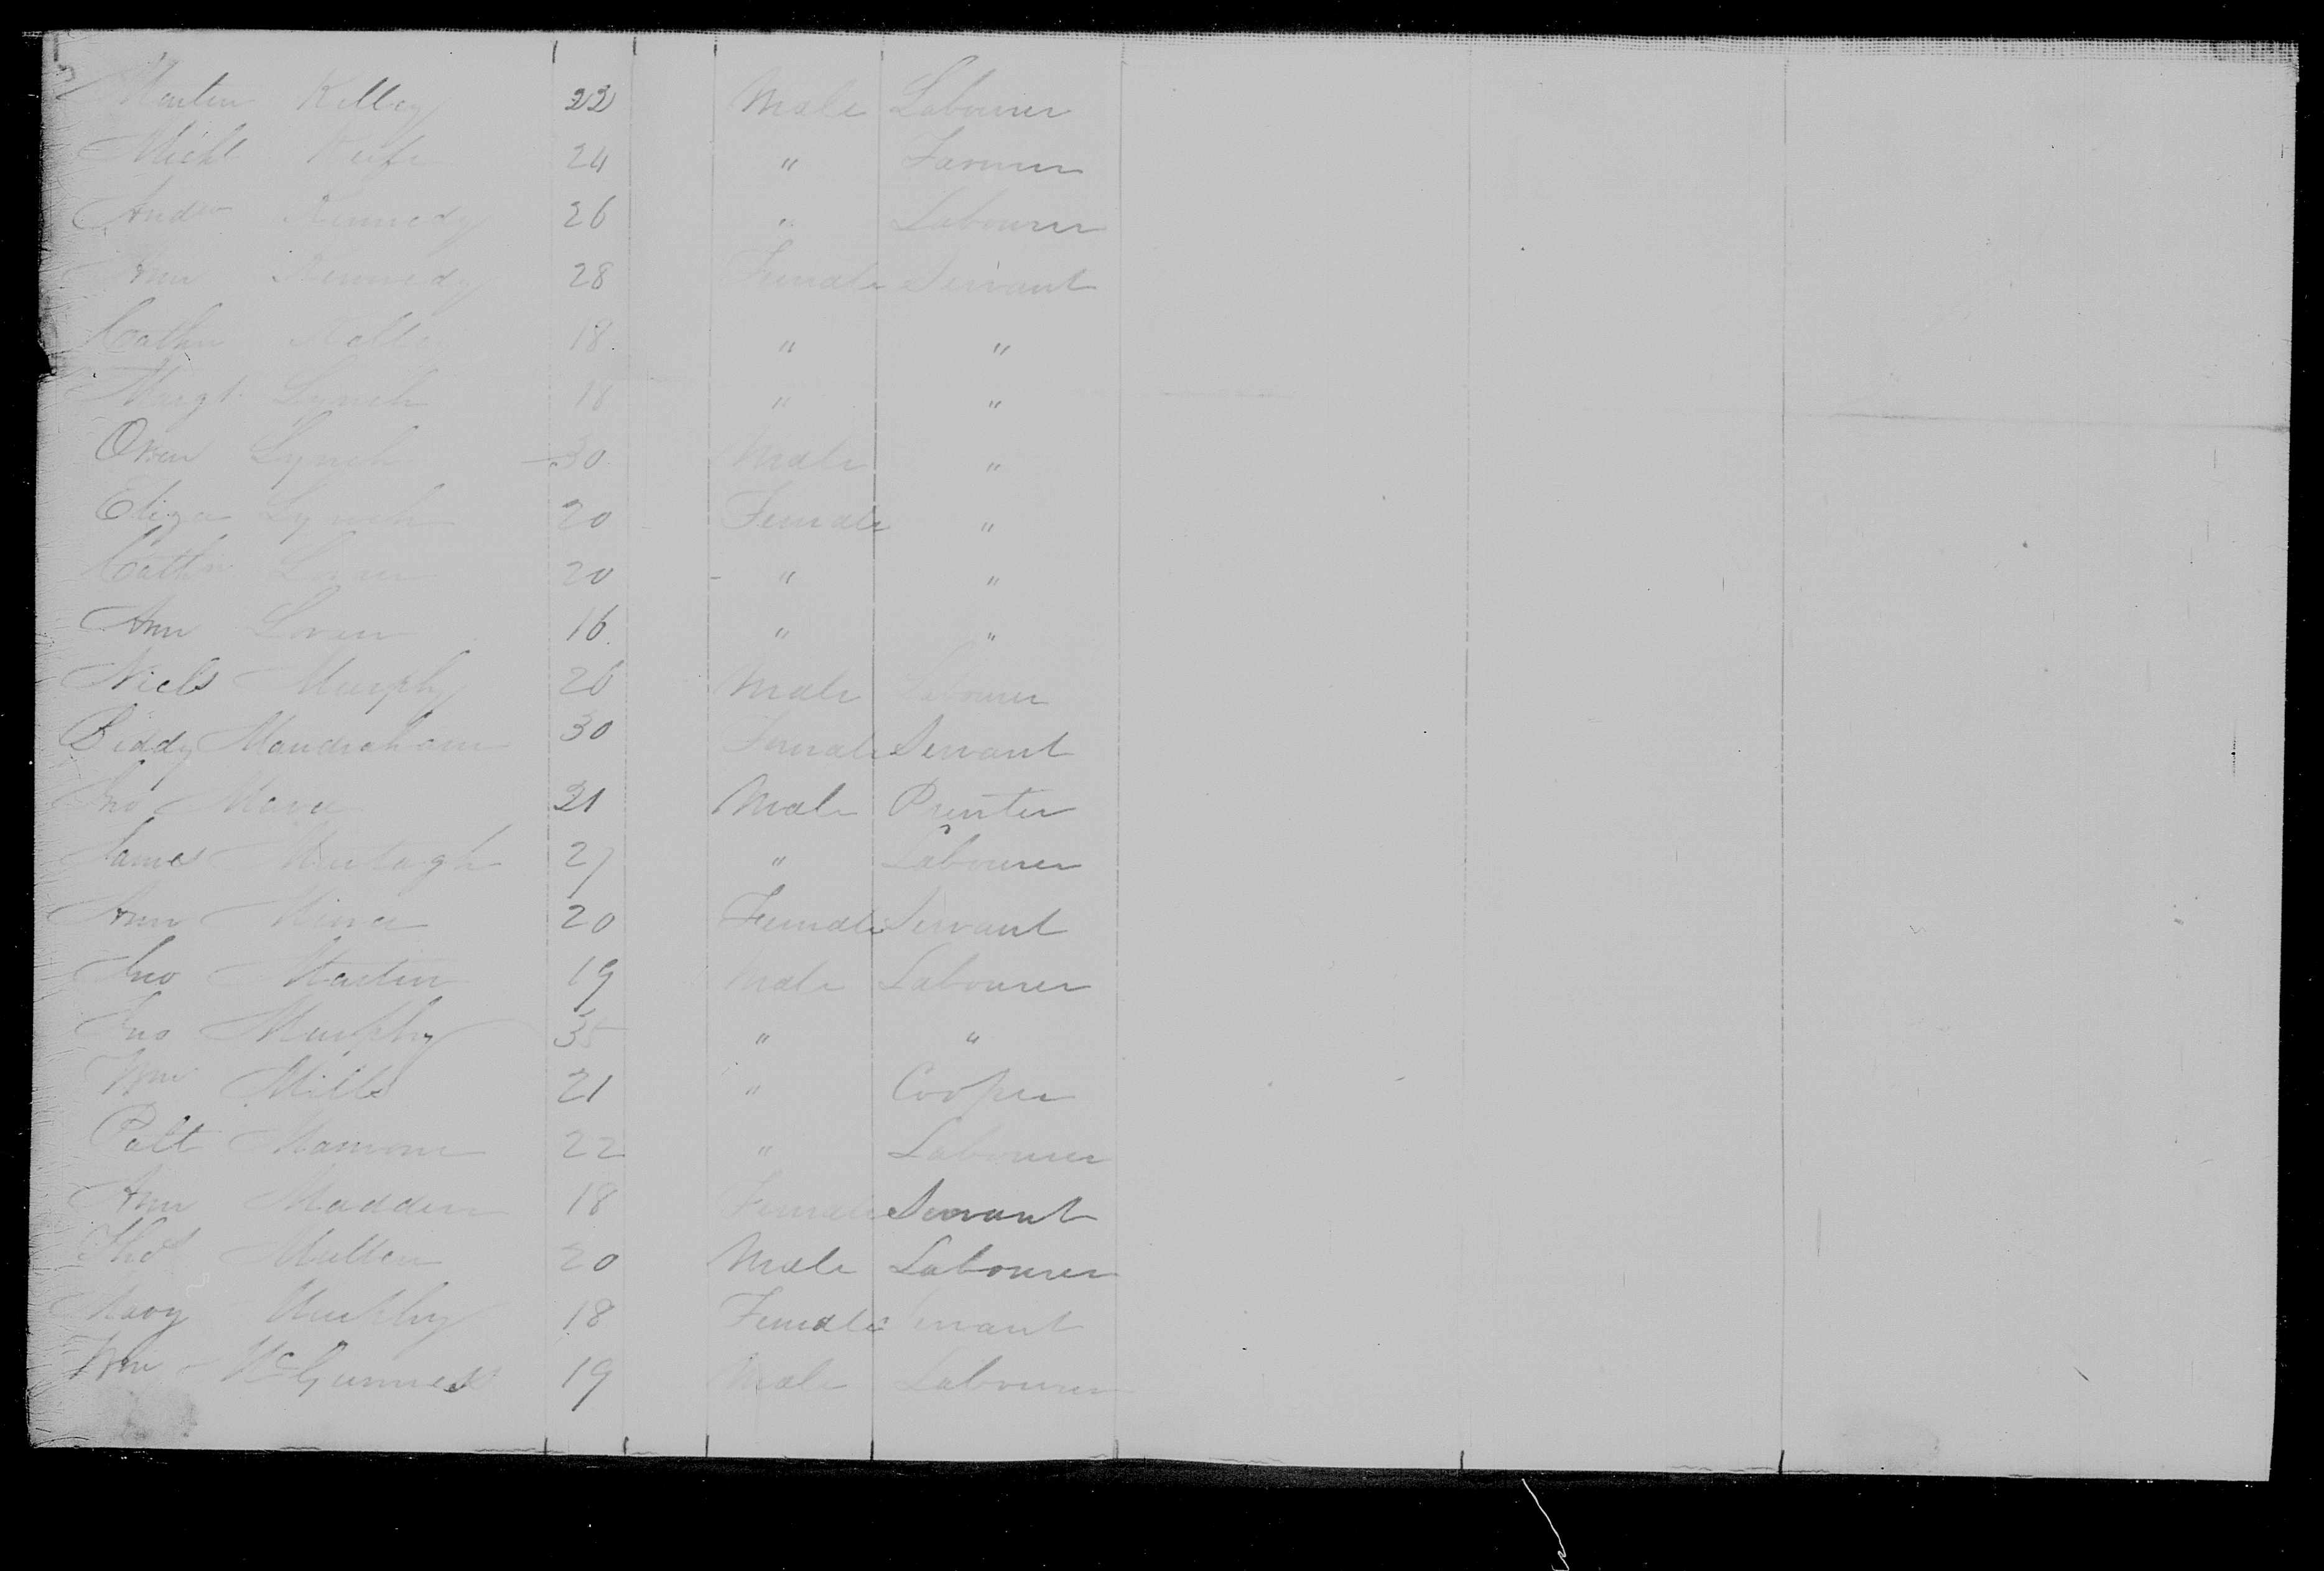 Martin Kelley 22 Male Labourer
Michl Keefe 24 " Farmer
Andw Kennedy 26 " Labourer
Ann Kennedy 28 Female Servant
Cathn Kelley 18 " "
Margt Lynch 18 " "
Owen Lynch 30 Male "
Eliza Lynch 20 Female "
Cathn 20 " "
Ann 16 " "
Nichs Murphy 26 Male Labourer
Biddy 30 Female Servant
Jno 21 Male Printer
James Murtagh 27 " Labourer
Ann 20 Female Servant
Jno Martin 19 Male Labourer
Jno Murphy 35 " "
Wm Mills 21 " Cooper
Patt 22 " Labourer
Ann Madden 18 Female Servant
Thos Mullen 20 Male Labourer
Mary Murphy 18 Female Servant
Wm McGunnes 19 Male Labourer